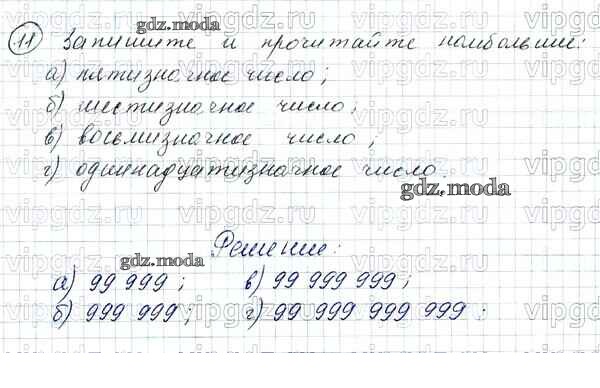 11 Запишите и прочитайте наибольшие:
а) пятизначное число;
б) шестизначное число;
в) восьмизначное число;
г) одиннадцатизначное число.
Решение:
а) 99 999; в) 99 999 999;
б) 999 999; г) 99 999 999 999;
gdz.moda
gdz.moda
gdz.moda
vipgdz.ru